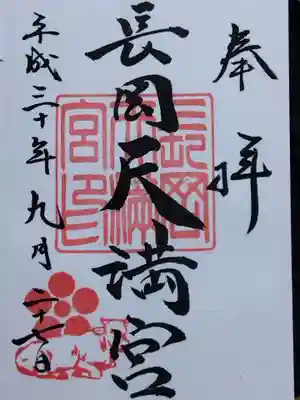 奉拝
長岡天満宮
平成三十年九月二十七日
長岡天満宮印